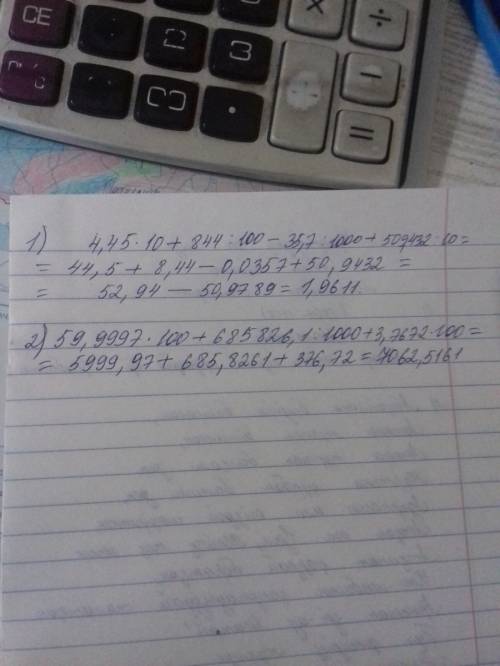 CE
×
÷
2
3
−
.
=
1) 4,45·10+844:100−35,7:1000+509432·10=
= 44,5+8,44−0,0357+50,9432 =
= 52,94 − 50,9789 = 1,9611.
2) 59,9997·100+685826,1:1000+3,7672·100=
= 5999,97+685,8261+376,72=7062,5161